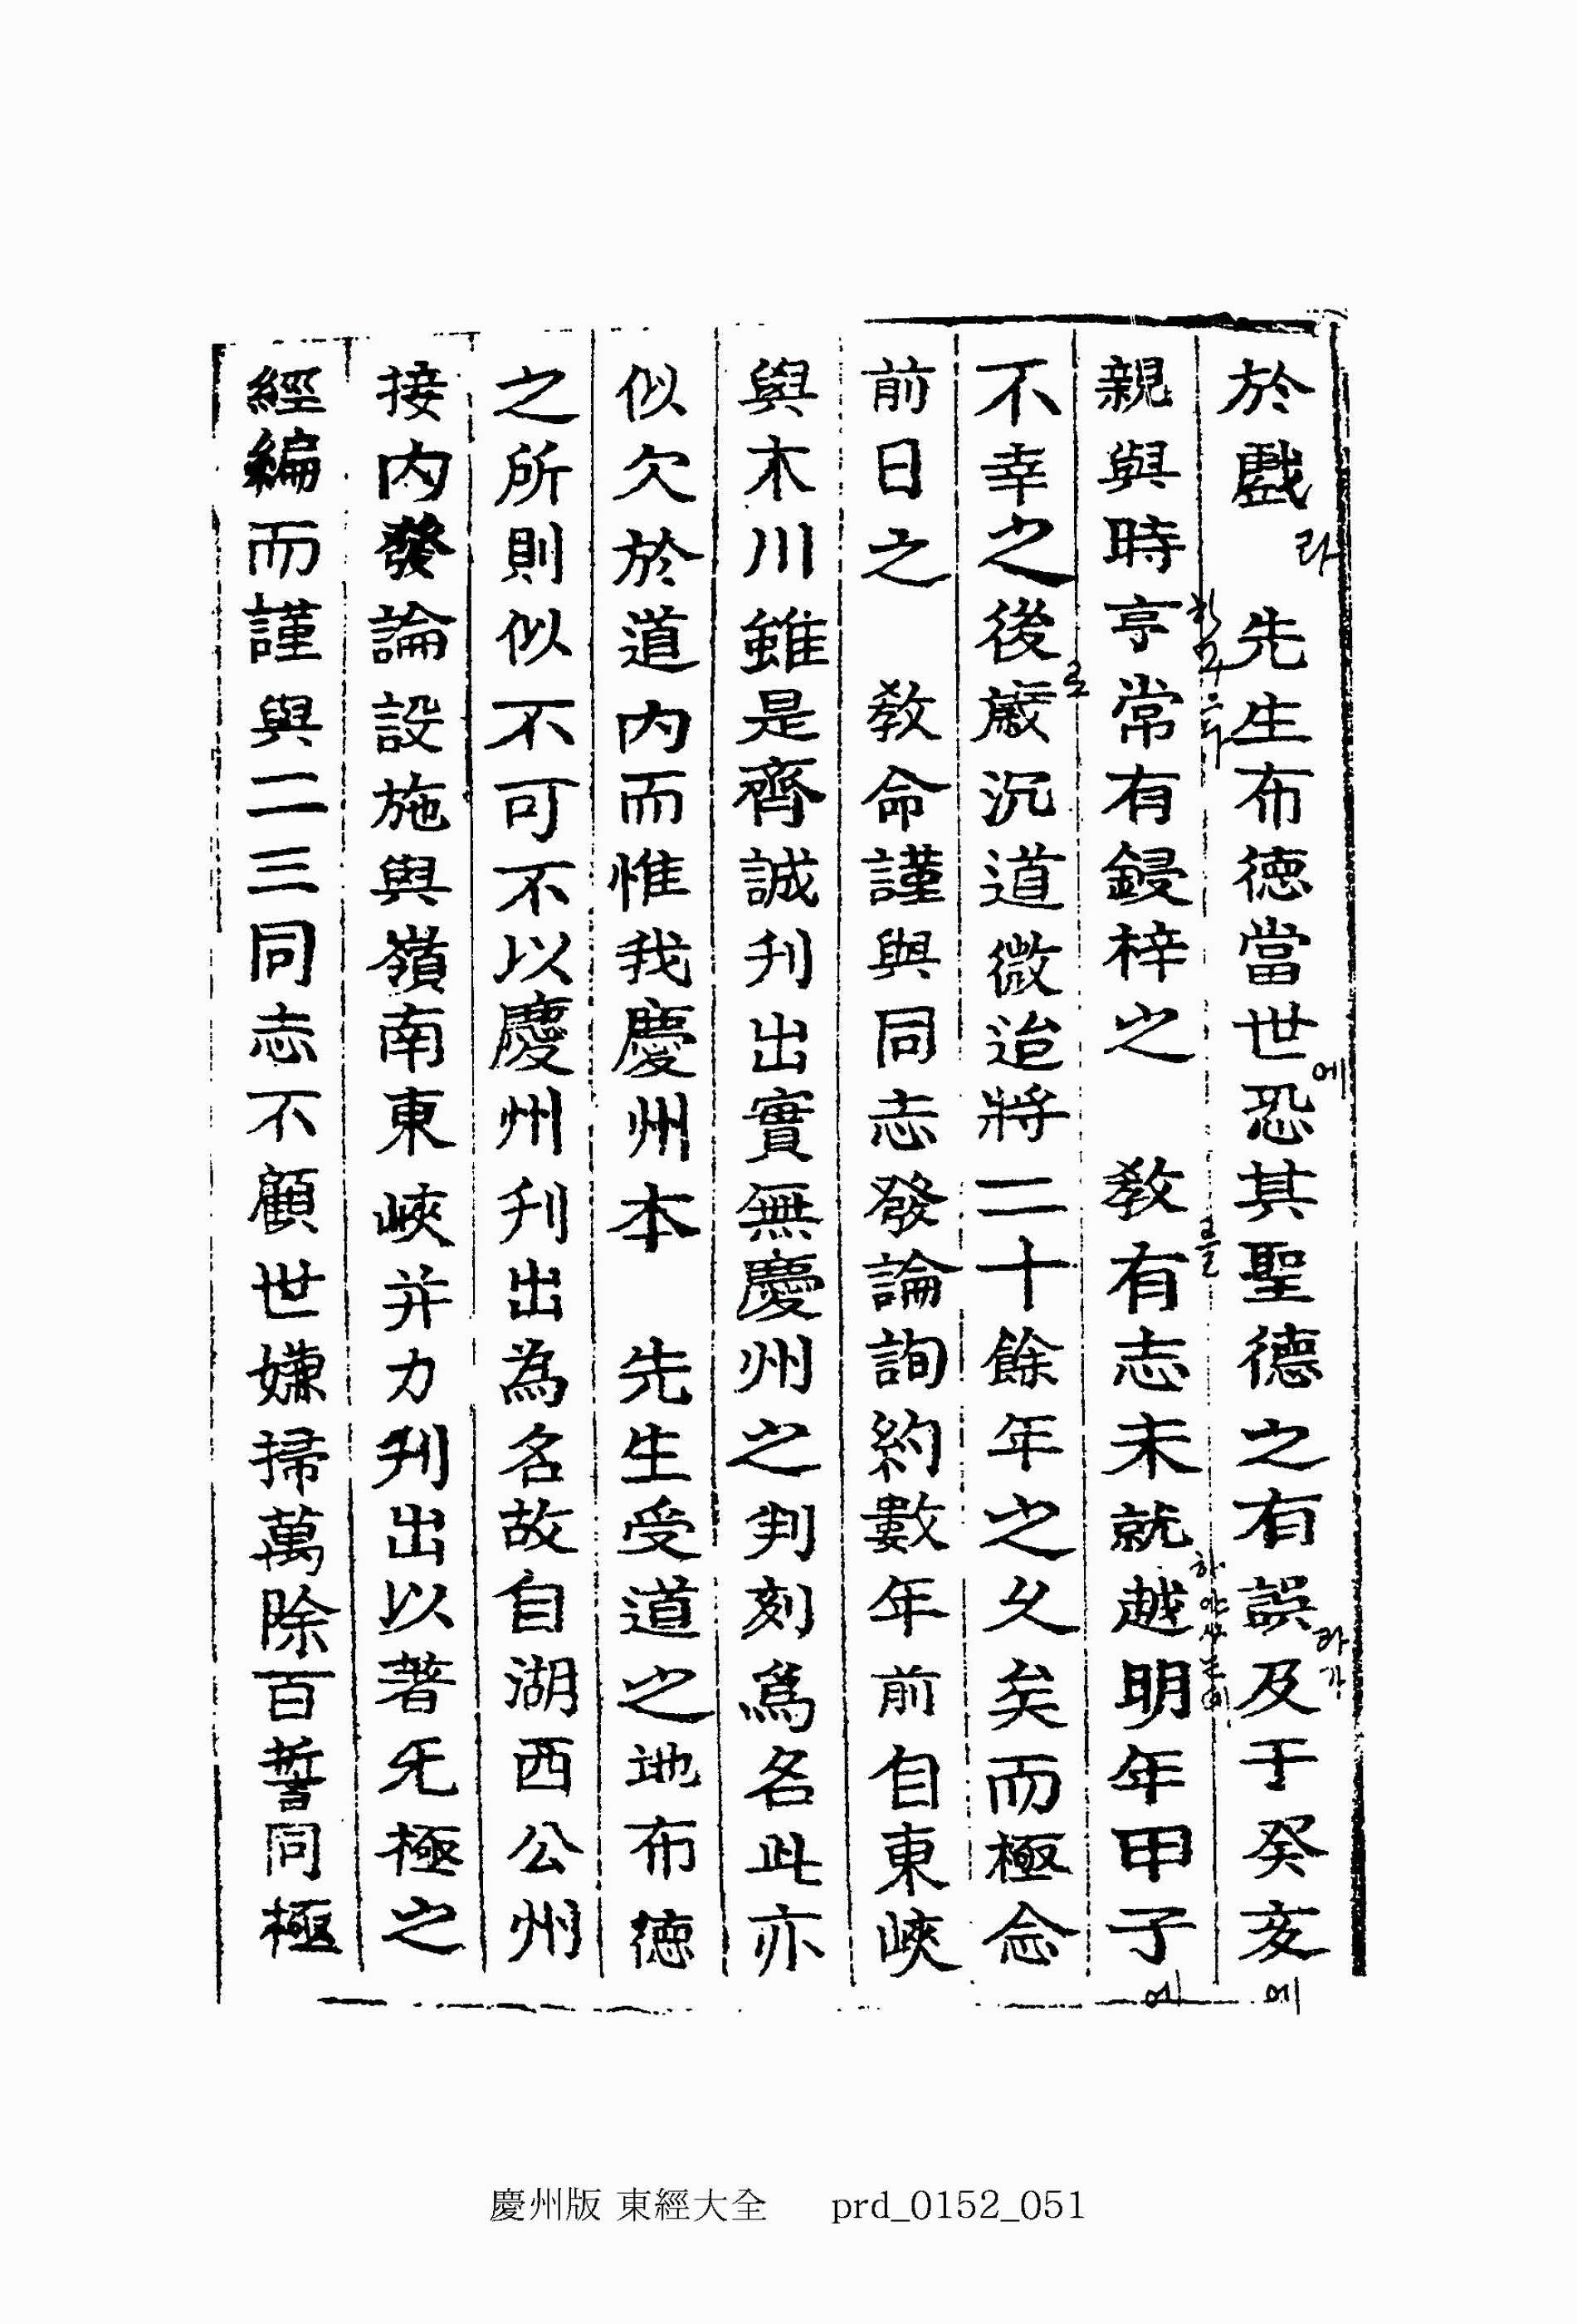 於戲 先生布德當世恐其聖德之有誤及于癸亥
親與時亨常有鋟梓之 敎有志未就越明年甲子
不幸之後歲沉道微迨將二十餘年之久矣而極念
前日之 敎命謹與同志發論詢約數年前自東峽
與木川雖是齊誠刊出實無慶州之判刻爲名此亦
似欠於道內而惟我慶州本 先生受道之地布德
之所則似不可不以慶州刊出為名故自湖西公州
接內發論設施與嶺南東峽并力刊出以著无極之
經編而謹與二三同志不顧世嫌掃萬除百誓同極
라
에
라가
에
를
에
로
慶州版 東經大全 prd_0152_051